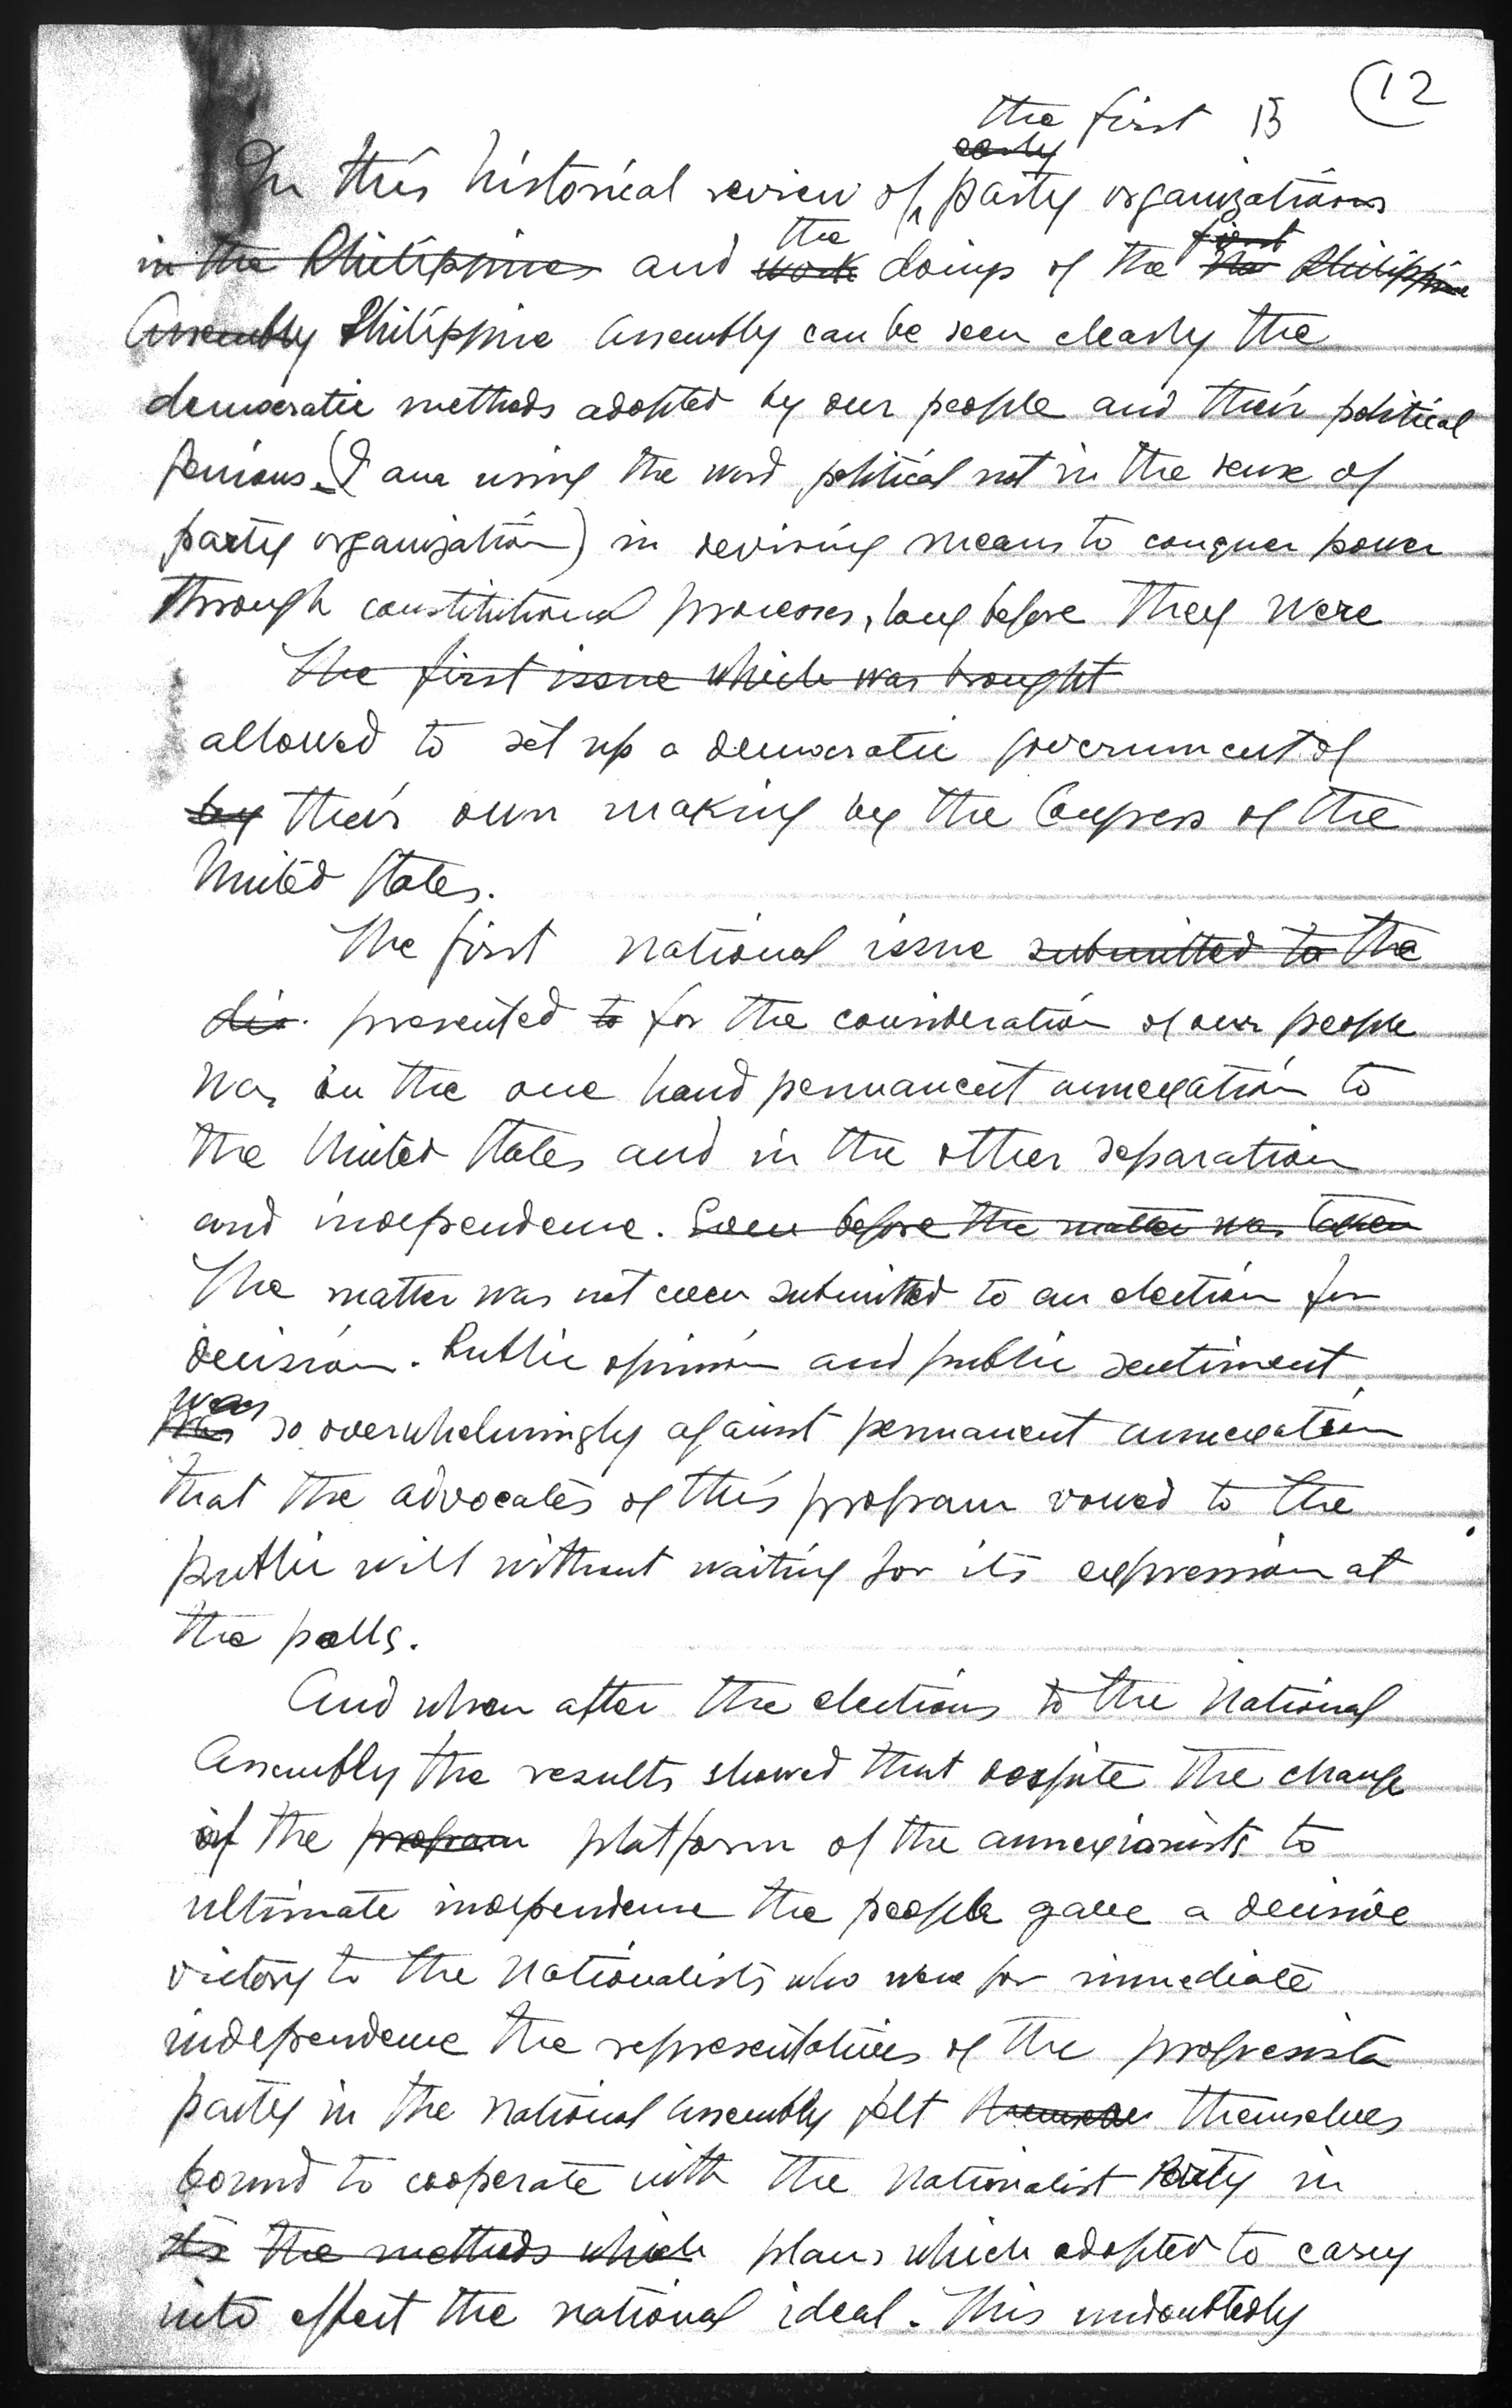 12
the first 13
early
In this historical review of party organizations
the first
in the Philippines and work doings of the the Philippine
Assembly Philippine Assembly can be seen clearly the
democratic methods adopted by our people and their political
genious. (I am using the word political not in the sense of
party organization) in devising means to conquer power
through constitutional processes, long before they were
The first issue which was brought
allowed to set up a democratic government of
by their own making by the Congress of the
United States.
The first national issue submitted to the
dis. presented to for the consideration of our people
was in the one hand permanent annexation to
the United States and in the other separation
and independence. Even before the matter was taken
The matter was not even submitted to an election for
decision. Public opinion and public sentiment
was
was so overwhelmingly against permanent annexation
that the advocates of this program vowed to the
public will without waiting for its expression at
the polls.
And when after the elections to the National
Assembly the results showed that despite the change
of the program platform of the annexionists to
ultimate independence the people gave a decisive
victory to the Nationalists who were for immediate
independence the representatives of the progresista
party in the National Assembly felt themselves themselves
bound to cooperate with the Nationalist Party in
its the methods which plans which adopted to carry
into effect the national ideal. This undoubtedly